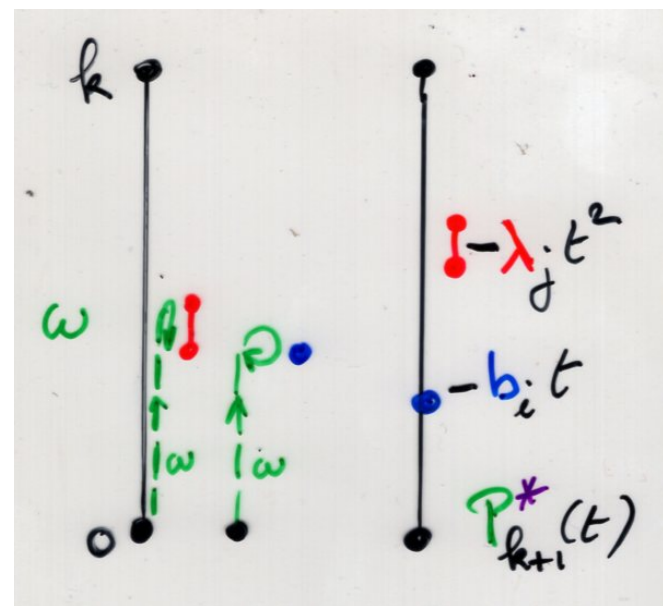 k
- λ_j t²
ω
- b_i t
ω ω
0
P*_{k+1}(t)